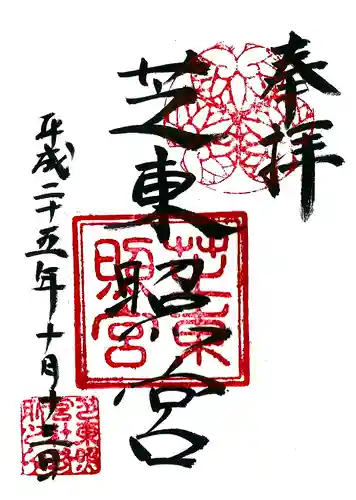 奉拝
芝東照宮
平成二十五年十月十三日
芝東照宮